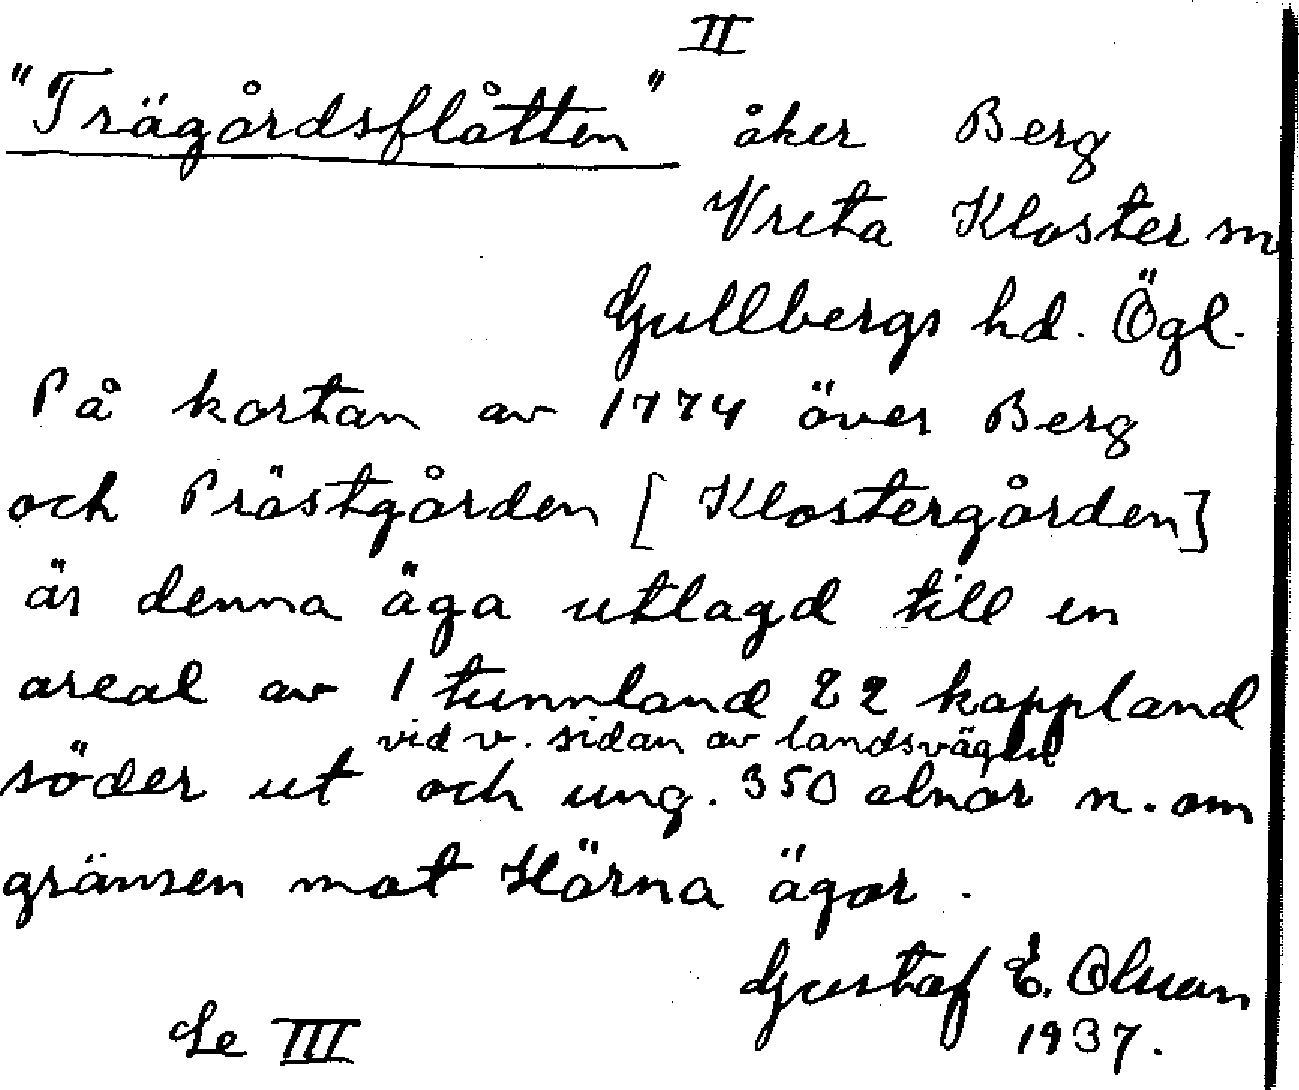 II
"Trägårdsflåtten" åker Berg
Vreta Kloster sn
Gullbergs hd. Ögl.
På kartan av 1774 över Berg
och Prästgården [Klostergården]
är denna äga utlagd till en
areal av 1 tunnland 22 kappland
vid v. sidan av landsvägen
söder ut och ung. 350 alnar n. om
gränsen mot Härna ägor.
Gustaf E. Olsson
1937.
Se III